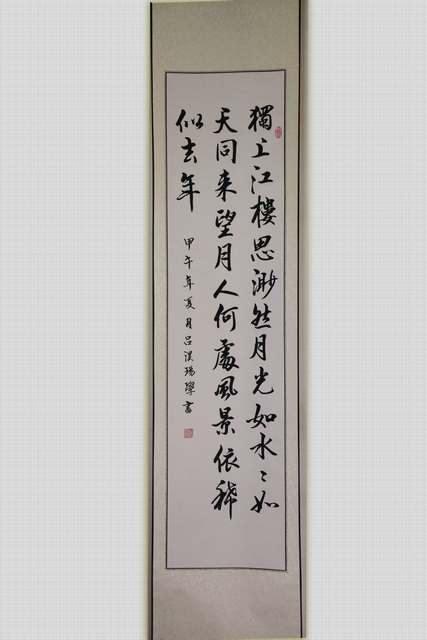 獨上江樓思渺然月光如水〻如
天同来望月人何處風景依稀
似去年
甲午年夏月吕學書